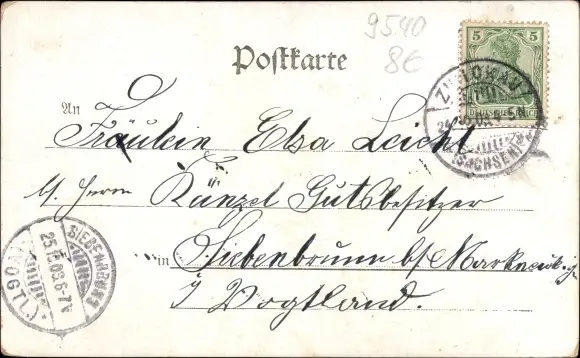 9540
8€
Postkarte
5
DEUTSCHES REICH
ZWICKAU
(SACHSEN)
An
Fräulein Elsa Leicht
Herrn Künzel Gutsbesitzer
in Siebenbrunn b/
Vogtland.
SIEBENBRUNN
25.10.03.6-7N
(VOGTL.)